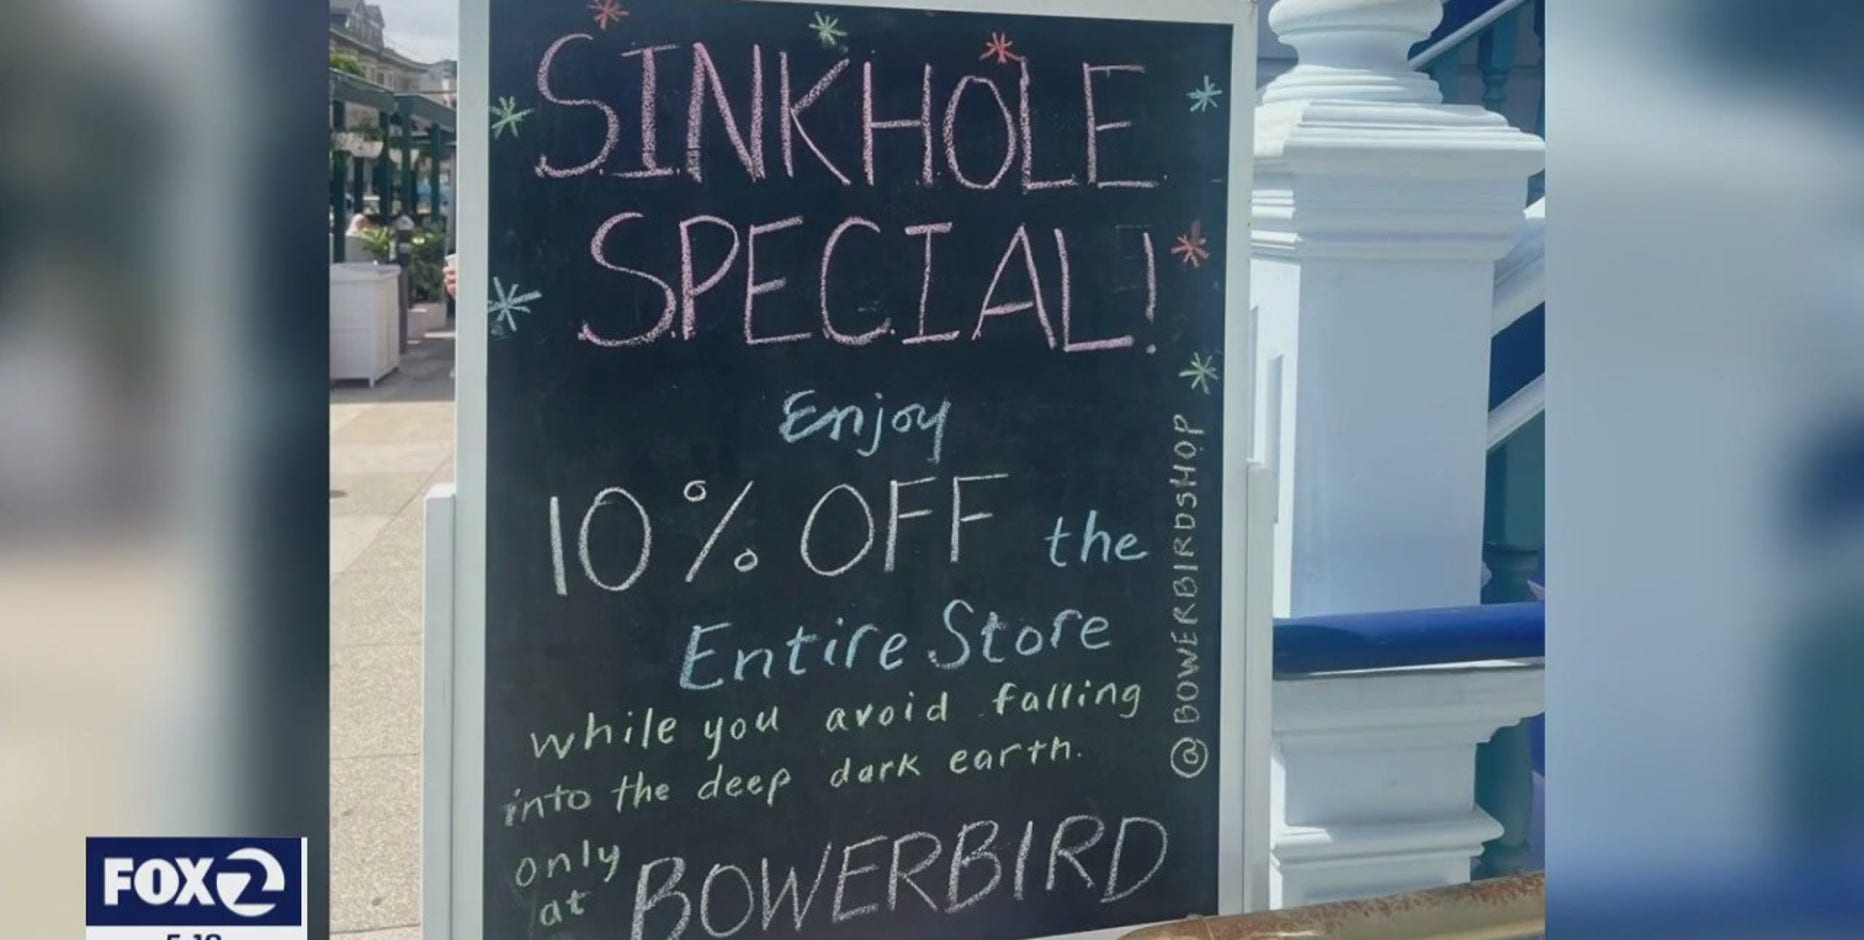 SINKHOLE
SPECIAL!
Enjoy
10% OFF the
Entire Store
while you avoid falling
into the deep dark earth.
only
at BOWERBIRD
@BOWERBIRDSHOP
FOX 2